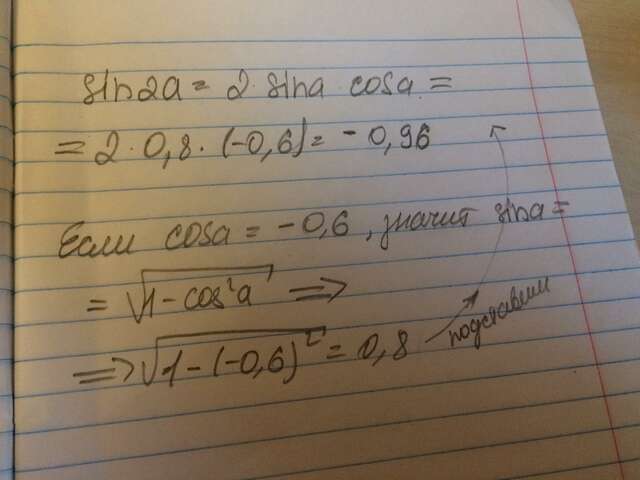 sin2a = 2·sina·cosa =
= 2·0,8·(-0,6) = -0,96
Если cosa = -0,6, значит sina =
= √1-cos²a =>
=> √1-(-0,6)² = 0,8
подставим